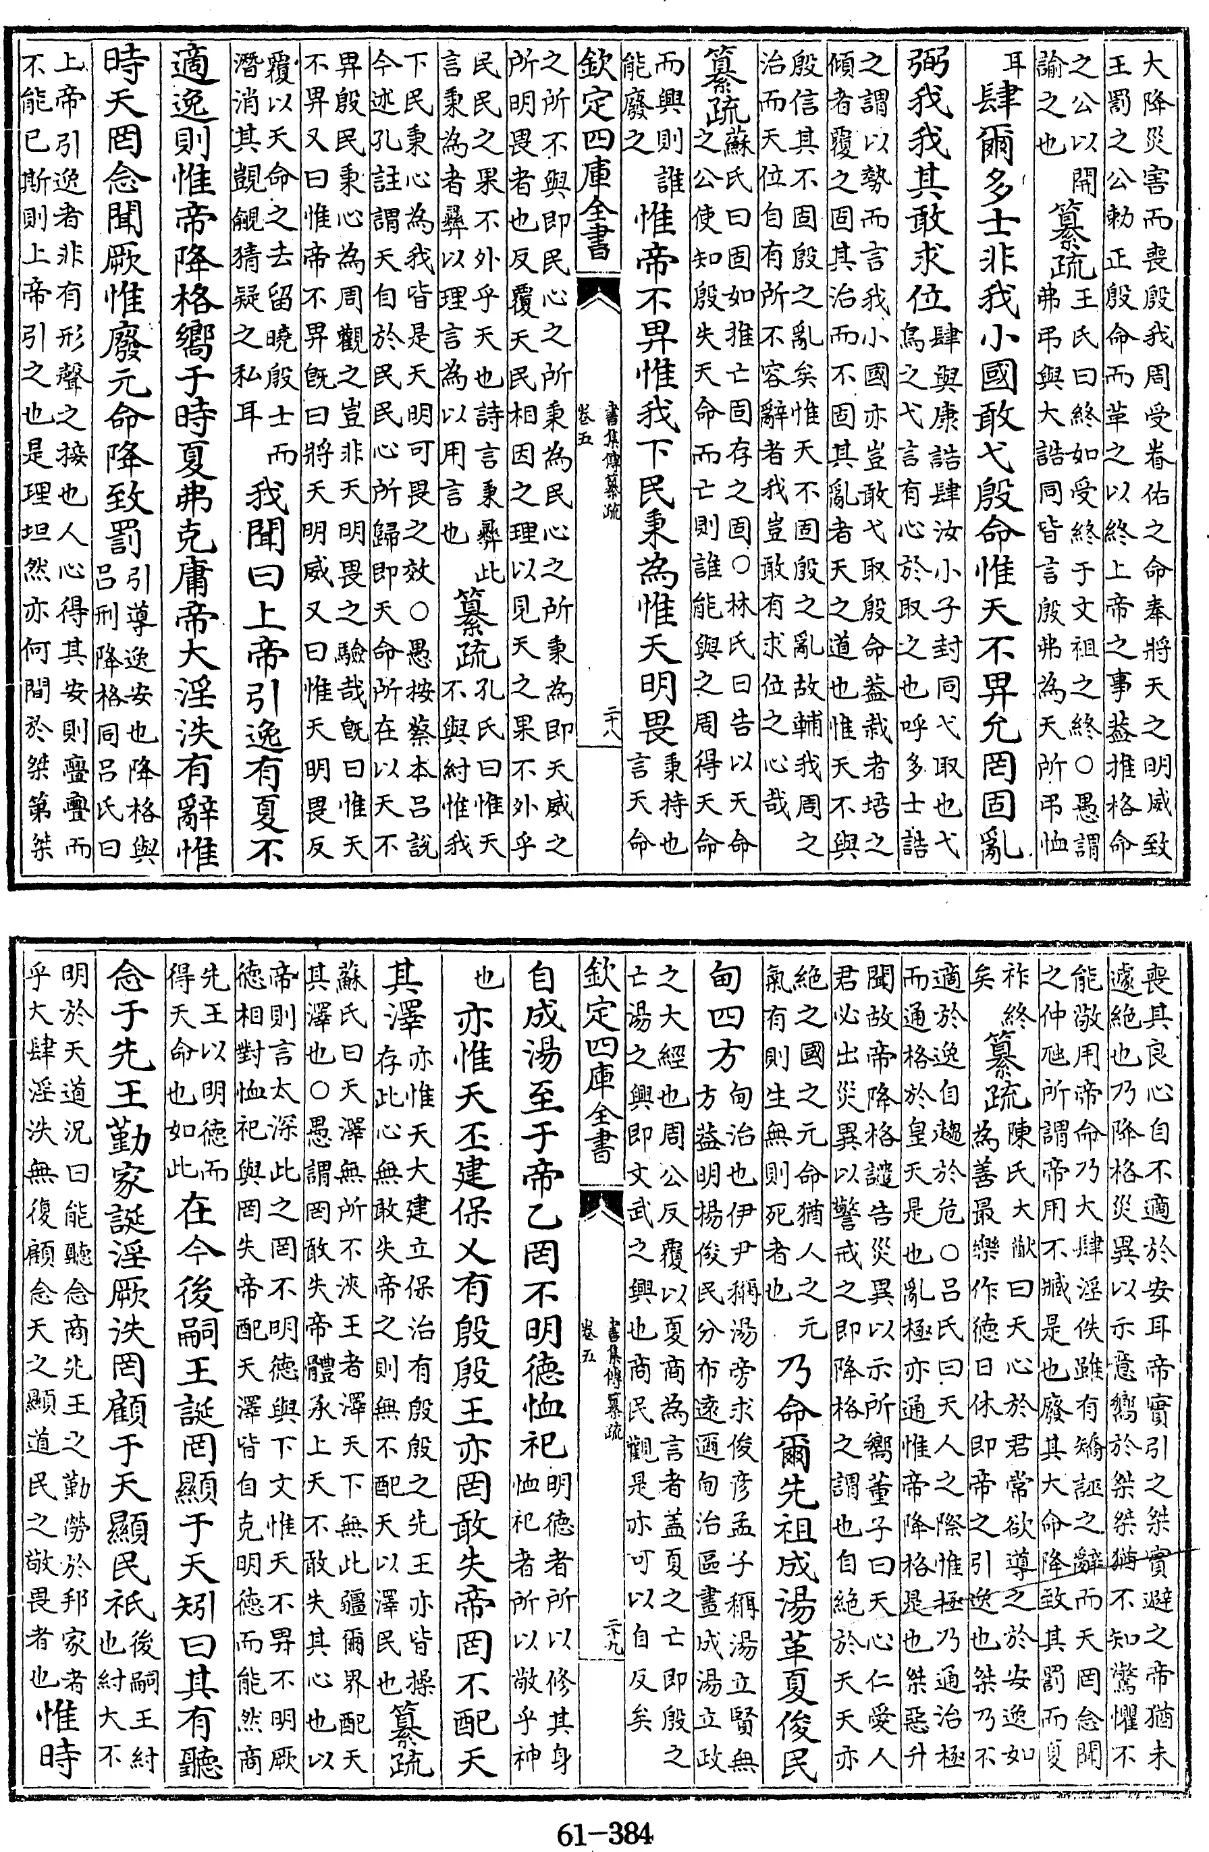 大降災害而喪殷我周受眷佑之命奉將天之明威致
王罰之公勅正殷命而革之以終上帝之事蓋推格命
之公以開
諭之也
纂疏
王氏曰終如受終于文祖之終○愚謂
弗弔與大誥同皆言殷弗為天所弔恤
耳
肆爾多士非我小國敢弋殷命惟天不畀允罔固亂
弼我我其敢求位
肆與康誥肆汝小子封同弋取也弋
鳥之弋言有心於取之也呼多士誥
之謂以勢而言我小國亦豈敢弋取殷命蓋栽者培之
傾者覆之固其治而不固其亂者天之道也惟天不與
殷信其不固殷之亂矣惟天不固殷之亂故輔我周之
治而天位自有所不容辭者我豈敢有求位之心哉
纂疏
蘇氏曰固如推亡固存之固○林氏曰告以天命
之公使知殷失天命而亡則誰能與之周得天命
而興則誰
能廢之
惟帝不畀惟我下民秉為惟天明畏
秉持也
言天命
欽定四庫全書
書集傳纂疏
卷五
二十八
之所不與即民心之所秉為民心之所秉為即天威之
所明畏者也反覆天民相因之理以見天之果不外乎
民民之果不外乎天也詩言秉彝此
言秉為者彝以理言為以用言也
纂疏
孔氏曰惟天
不與紂惟我
下民秉心為我皆是天明可畏之效○愚按蔡本呂說
今述孔註謂天自於民民心所歸即天命所在以天不
畀殷民秉心為周觀之豈非天明畏之驗哉既曰惟天
不畀又曰惟帝不畀既曰將天明威又曰惟天明畏反
覆以天命之去留曉殷士而
潛消其覬覦猜疑之私耳
我聞曰上帝引逸有夏不
適逸則惟帝降格嚮于時夏弗克庸帝大淫泆有辭惟
時天罔念聞厥惟廢元命降致罰
引導逸安也降格與
呂刑降格同呂氏曰
上帝引逸者非有形聲之接也人心得其安則亹亹而
不能已斯則上帝引之也是理坦然亦何間於桀第桀
喪其良心自不適於安耳帝實引之桀實避之帝猶未
遽絕也乃降格災異以示意嚮於桀桀猶不知驚懼不
能敬用帝命乃大肆淫佚雖有矯誣之辭而天罔念聞
之仲虺所謂帝用不臧是也廢其大命降致其罰而夏
祚終
矣
纂疏
陳氏大猷曰天心於君常欲導之於安逸如
為善最樂作德日休即帝之引逸也桀乃不
適於逸自趨於危○呂氏曰天人之際惟極乃通治極
而通格於皇天是也亂極亦通惟帝降格是也桀惡升
聞故帝降格譴告災異以示所嚮董子曰天心仁愛人
君必出災異以警戒之即降格之謂也自絕於天天亦
絕之國之元命猶人之元
氣有則生無則死者也
乃命爾先祖成湯革夏俊民
甸四方
甸治也伊尹稱湯旁求俊彥孟子稱湯立賢無
方蓋明揚俊民分布遠邇甸治區畫成湯立政
之大經也周公反覆以夏商為言者蓋夏之亡即殷之
亡湯之興即文武之興也商民觀是亦可以自反矣
欽定四庫全書
書集傳纂疏
卷五
二十九
自成湯至于帝乙罔不明德恤祀
明德者所以修其身
恤祀者所以敬乎神
也
亦惟天丕建保乂有殷殷王亦罔敢失帝罔不配天
其澤
亦惟天大建立保治有殷殷之先王亦皆操
存此心無敢失帝之則無不配天以澤民也
纂疏
蘇氏曰天澤無所不浹王者澤天下無此疆爾界配天
其澤也○愚謂罔敢失帝體承上天不敢失其心也以
帝則言太深此之罔不明德與下文惟天不畀不明厥
德相對恤祀與罔失帝配天澤皆自克明德而能然商
先王以明德而
得天命也如此
在今後嗣王誕罔顯于天矧曰其有聽
念于先王勤家誕淫厥泆罔顧于天顯民祗
後嗣王紂
也紂大不
明於天道況曰能聽念商先王之勤勞於邦家者
乎大肆淫泆無復顧念天之顯道民之敬畏者也
惟時
61-384